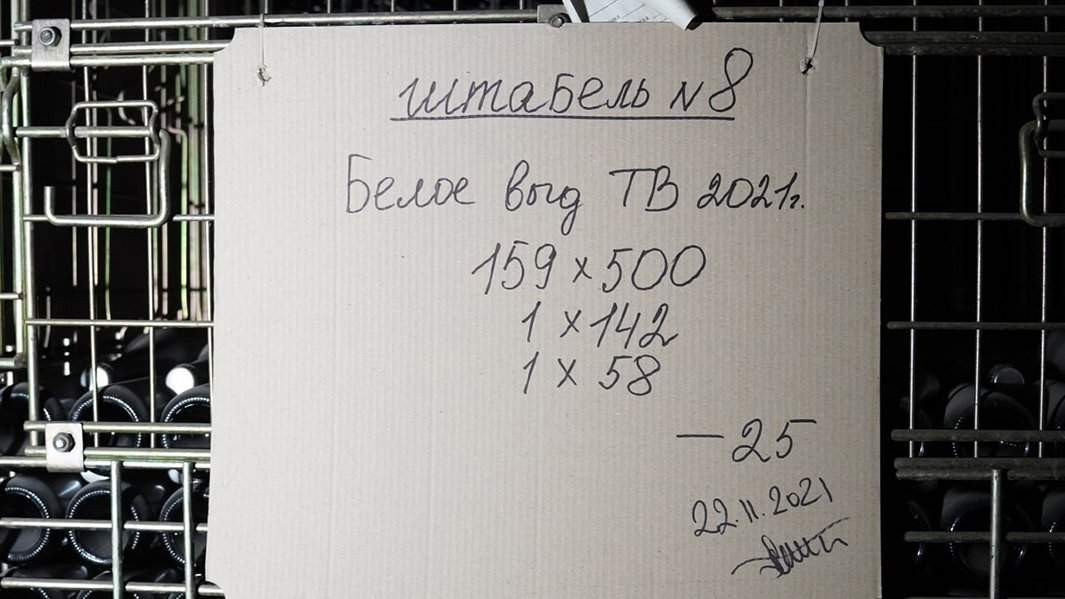 штабель N8
Белое выд ТВ 2021г.
159 x 500
1 x 142
1 x 58
— 25
22.11.2021